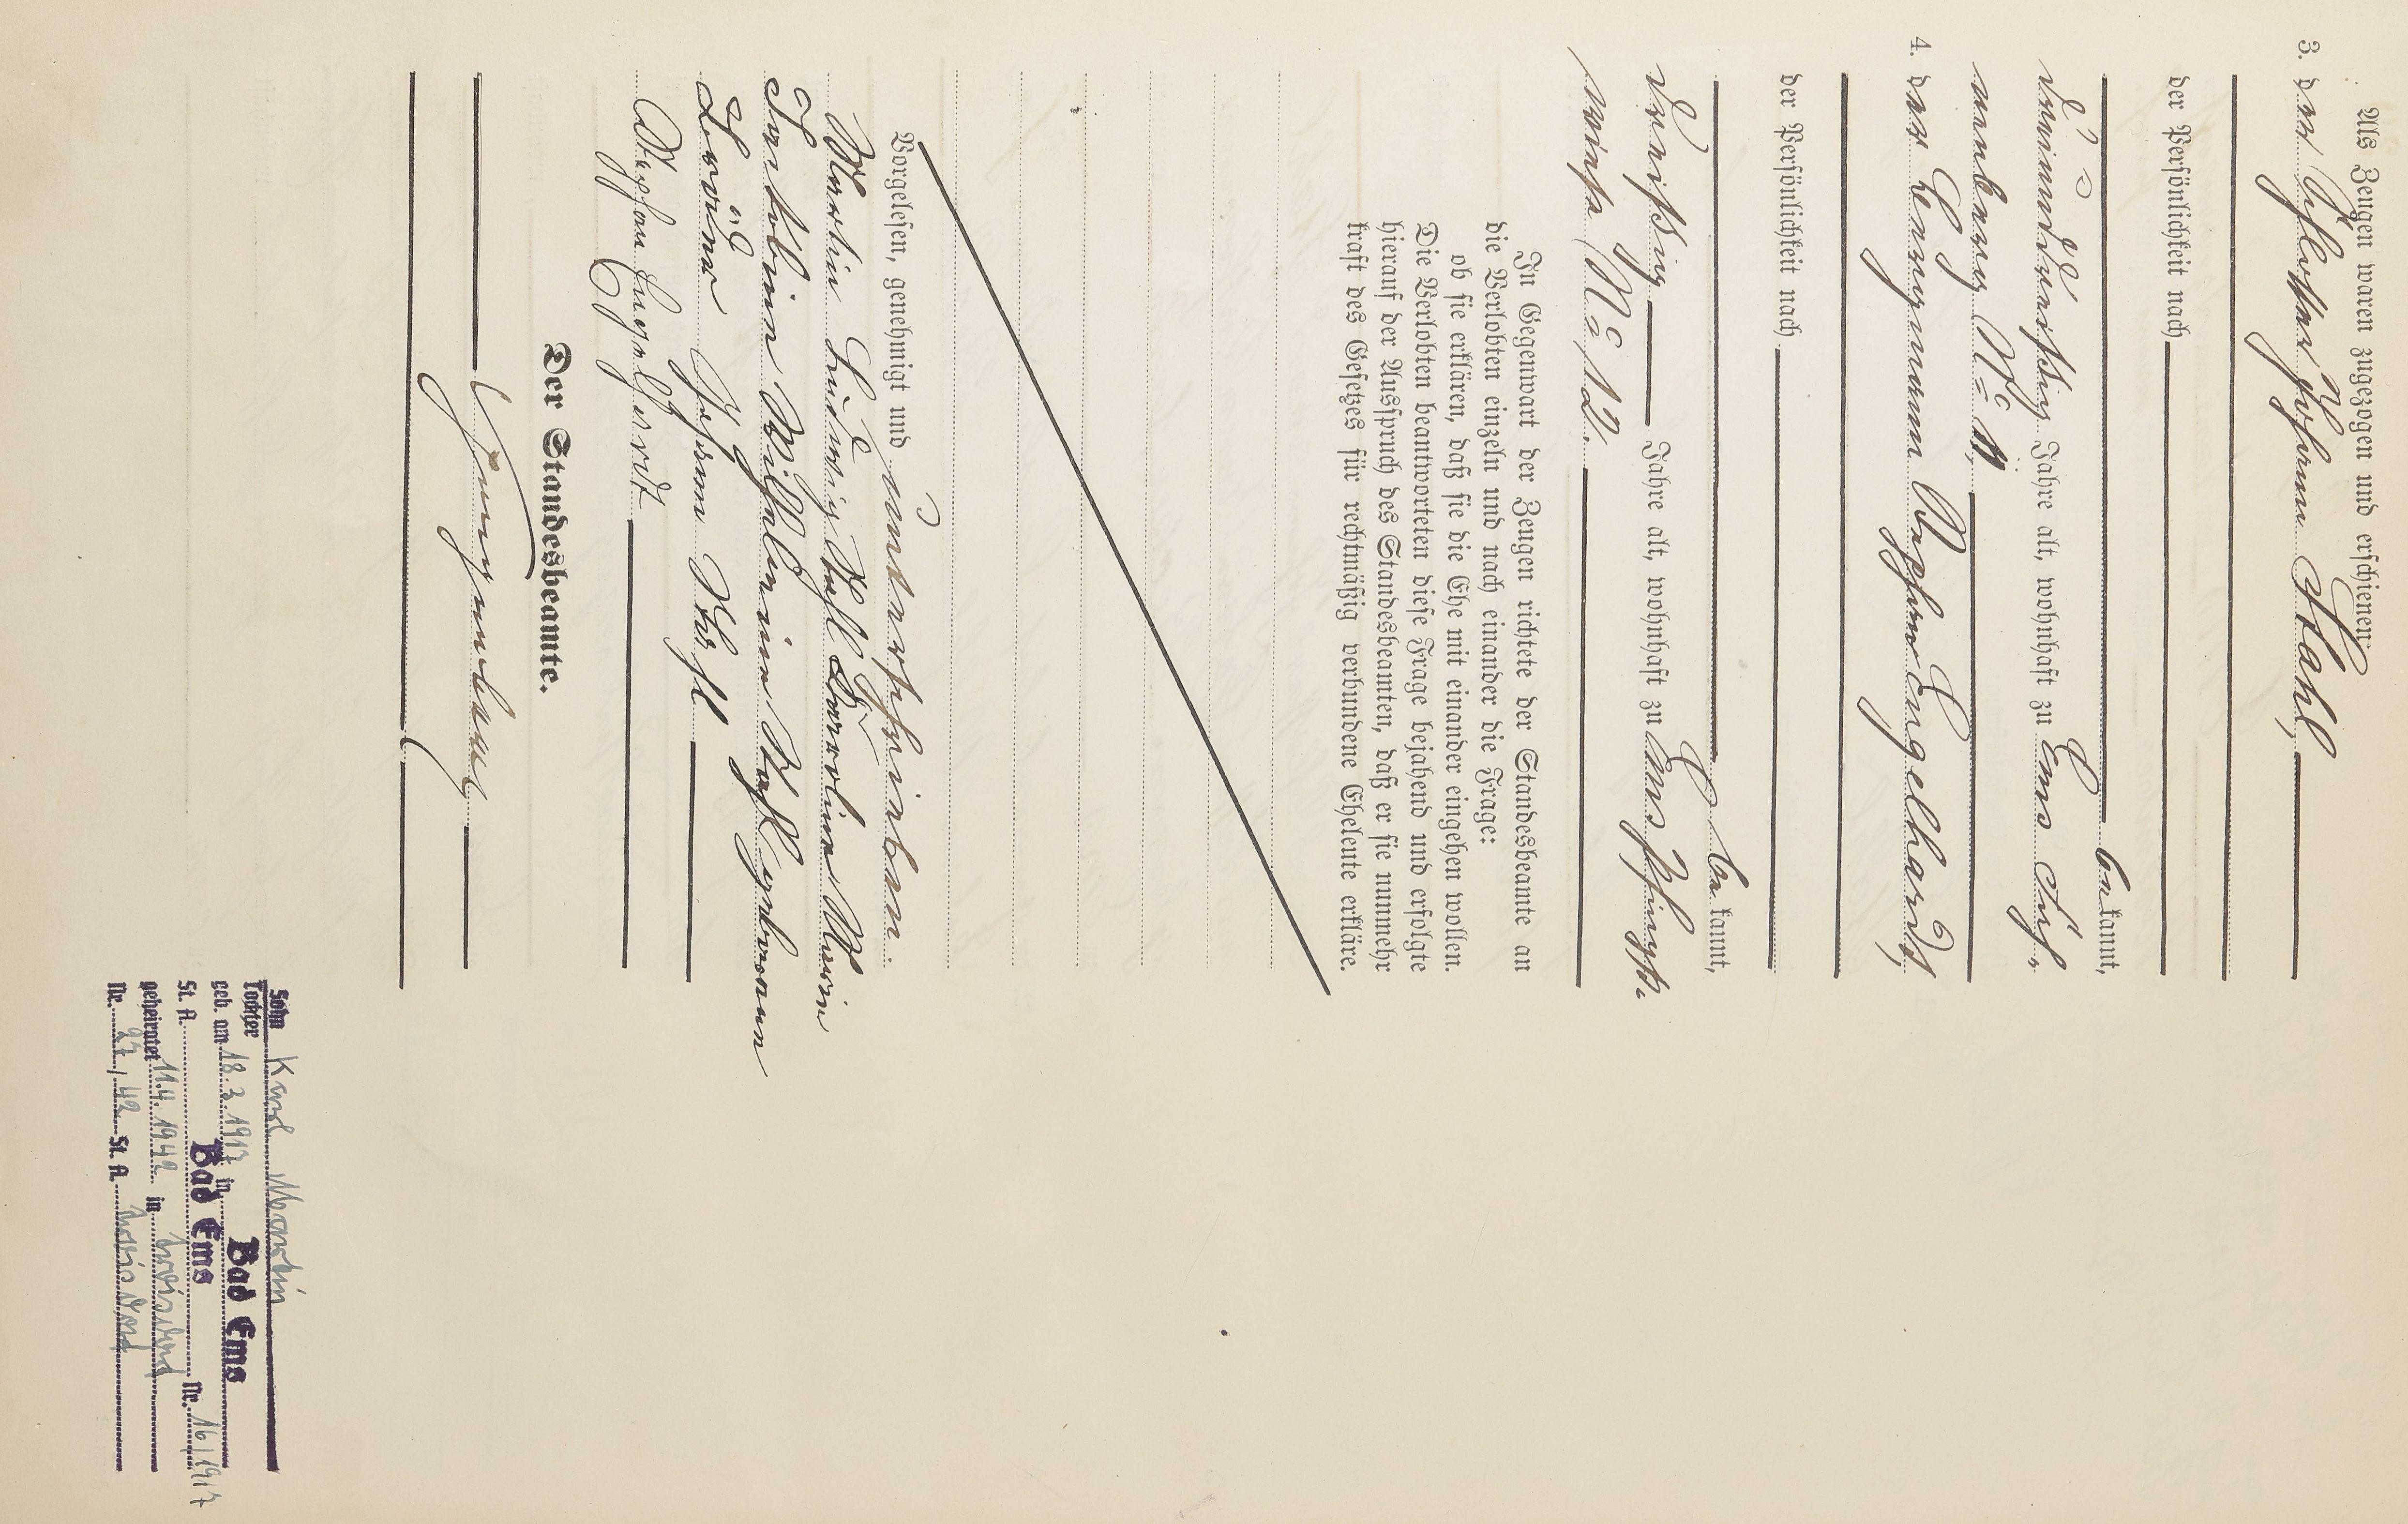 Als Zeugen waren zugezogen und erschienen:
3. der Schlosser Johann Stahl,
der Persönlichkeit nach
bekannt,
dreiunddreißig Jahre alt, wohnhaft zu Ems
No 11,
4. der Bergmann Stephan Engelhardt,
der Persönlichkeit nach
bekannt,
dreißig Jahre alt, wohnhaft zu Ems, Pfingst-
wiese No 12.
In Gegenwart der Zeugen richtete der Standesbeamte an
die Verlobten einzeln und nach einander die Frage:
ob sie erklären, daß sie die Ehe mit einander eingehen wollen.
Die Verlobten beantworteten diese Frage bejahend und erfolgte
hierauf der Ausspruch des Standesbeamten, daß er sie nunmehr
kraft des Gesetzes für rechtmäßig verbundene Eheleute erkläre.
Vorgelesen, genehmigt und unterschrieben.
Ludwig
Wilhelmine geborene
Johann Stahl
Stephan Engelhardt
Der Standesbeamte.
Sohn Karl Martin
Tochter
geb. am 18.3.1917 in Bad Ems
St. A. Bad Ems Nr. 16/1917
geheiratet 11.4.1942 in Troisdorf
Nr. 27/42 St. A. Troisdorf